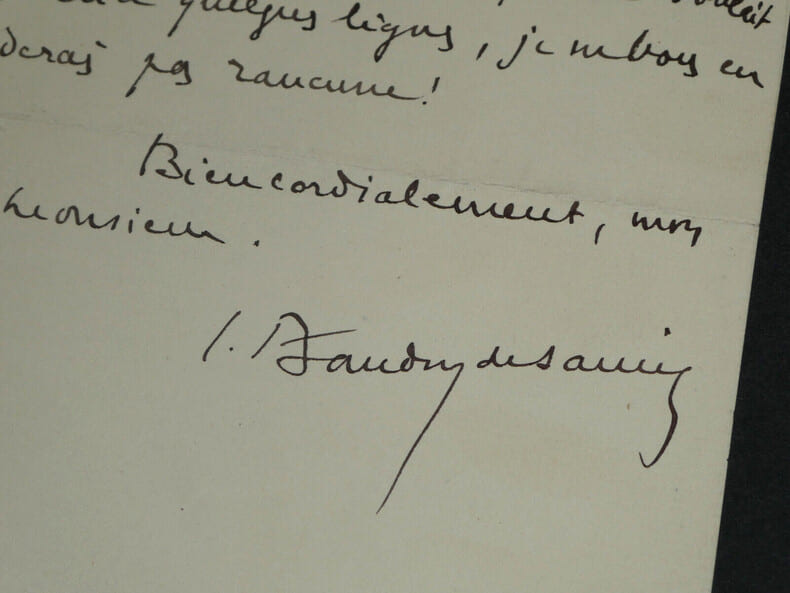 quelques lignes, je ne vous en
derai pas rancune!
Bien cordialement, mon
Monsieur.
L. Baudry de Saunier